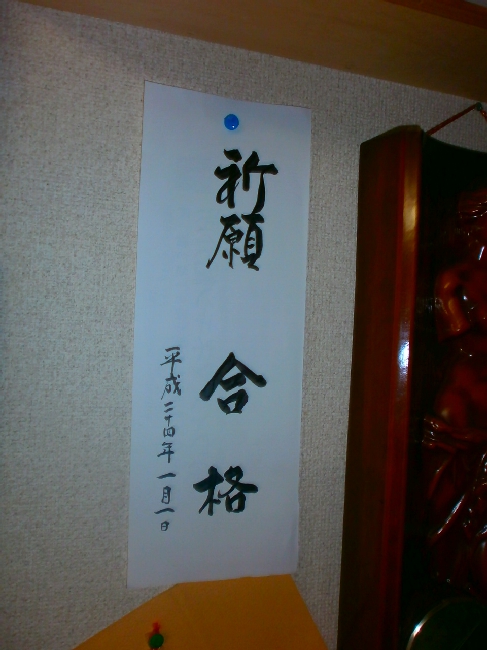 祈願 合格
平成二十四年 一月一日